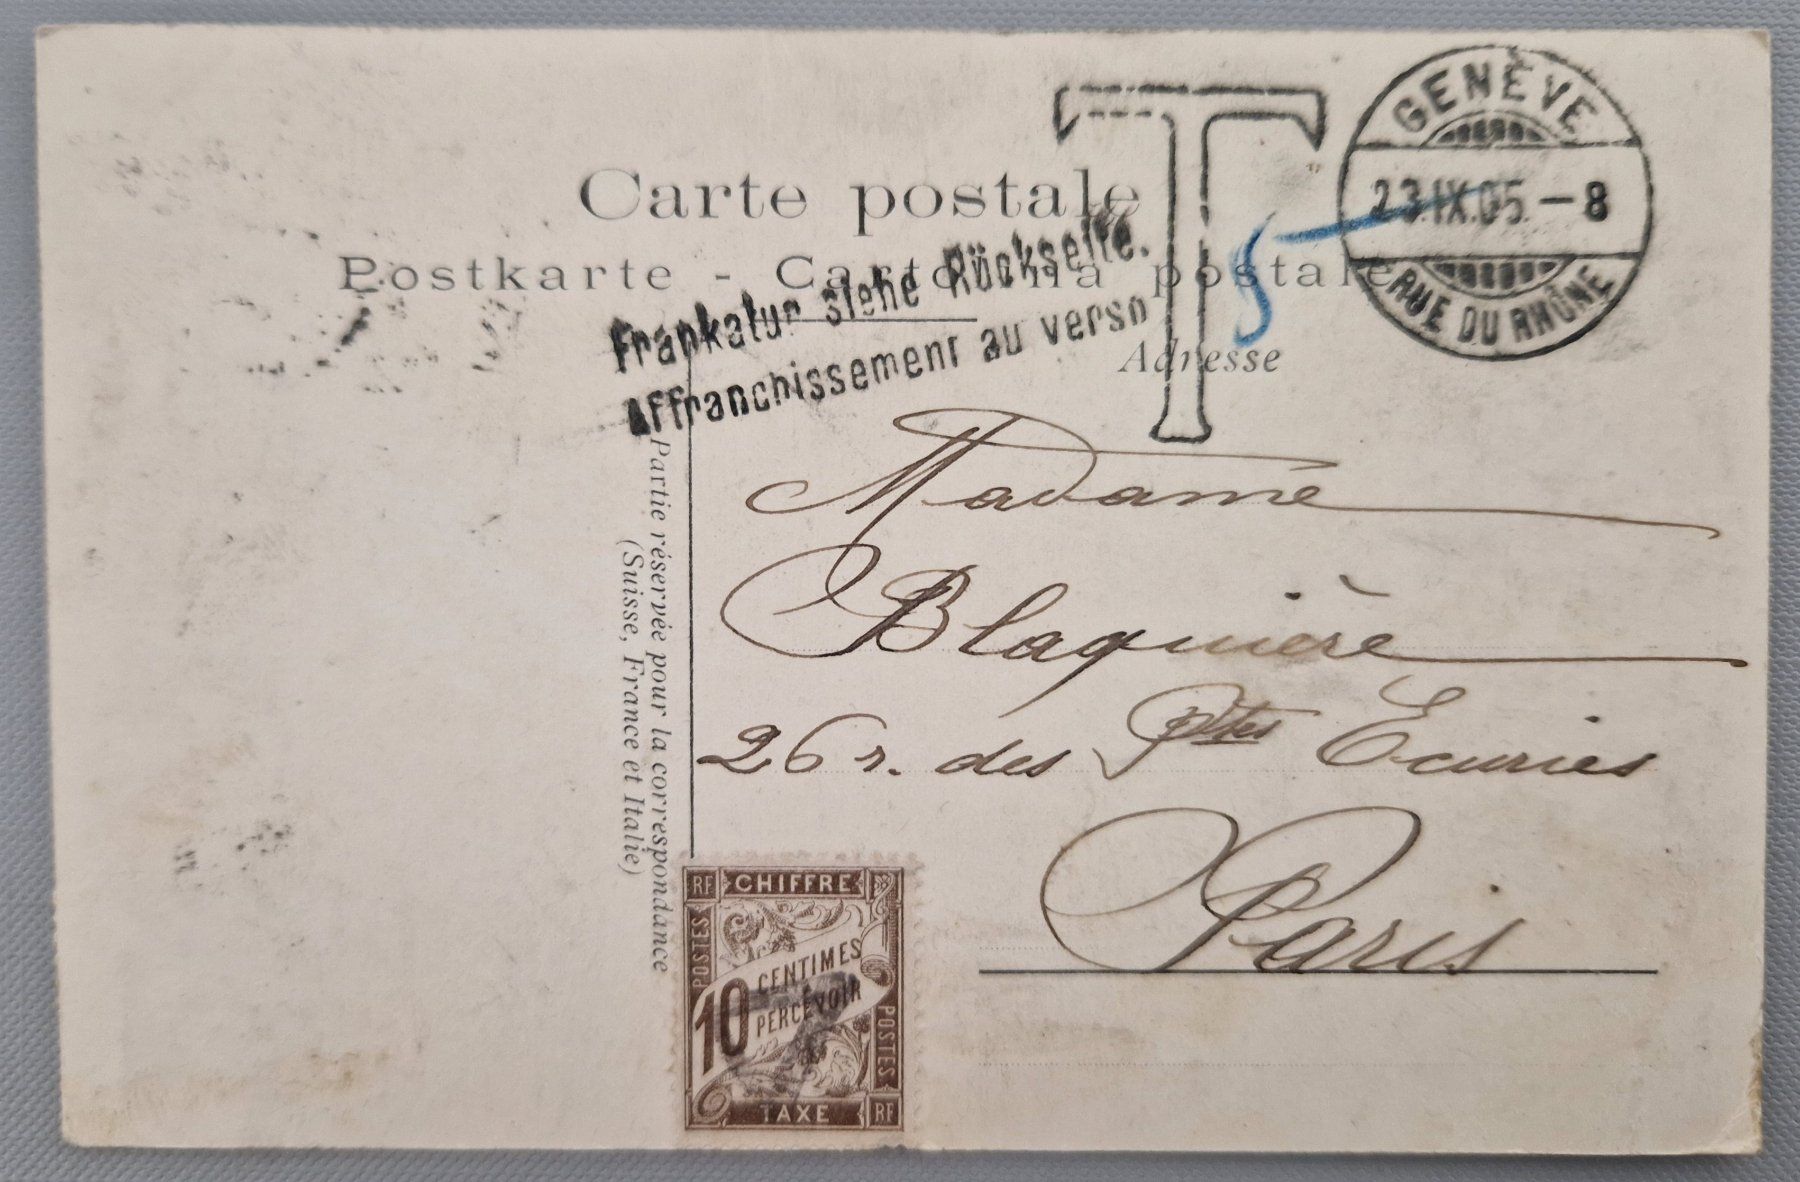 Carte postale
Postkarte - Cartolina postale
T
5
GENÈVE
23.IX.05.-8
RUE DU RHÔNE
Frankatur siehe Rückseite.
Affranchissement au verso
Adresse
Partie réservée pour la correspondance
(Suisse, France et Italie)
Madame
Blaquière
26 r. des Ptes Ecuries
Paris
RF CHIFFRE
POSTES
10 CENTIMES
PERCEVOIR
POSTES
TAXE RF